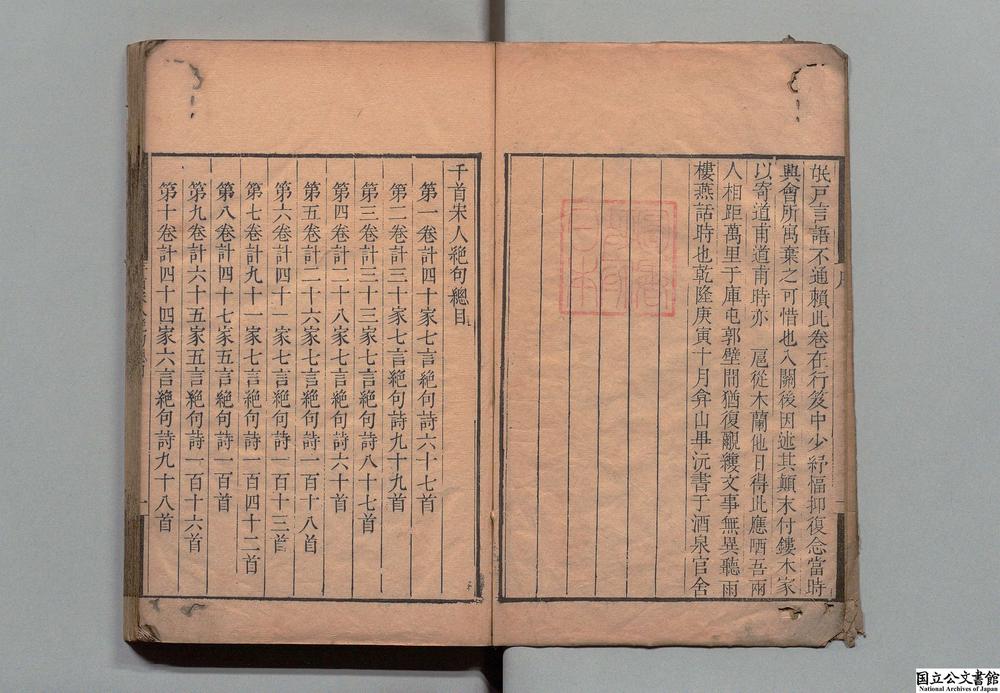 氓戶言語不通賴此卷在行笈中少紓愊抑復念當時
興會所寓棄之可惜也入關後因述其顛末付鏤木家
以寄道甫道甫時亦 扈從木蘭他日得此應哂吾兩
人相距萬里于庫屯郭壁間猶復覼縷文事無異聽雨
樓燕話時也乾隆庚寅十月弇山畢沅書于酒泉官舍
千首宋人絕句總目
第一卷計四十家七言絕句詩六十七首
第二卷計三十家七言絕句詩九十九首
第三卷計三十三家七言絕句詩八十七首
第四卷計二十八家七言絕句詩六十首
第五卷計二十六家七言絕句詩一百十八首
第六卷計四十一家七言絕句詩一百十三首
第七卷計九十一家七言絕句詩一百四十二首
第八卷計四十七家五言絕句詩一百首
第九卷計六十五家五言絕句詩一百十六首
第十卷計四十四家六言絕句詩九十八首
国立公文書館
National Archives of Japan